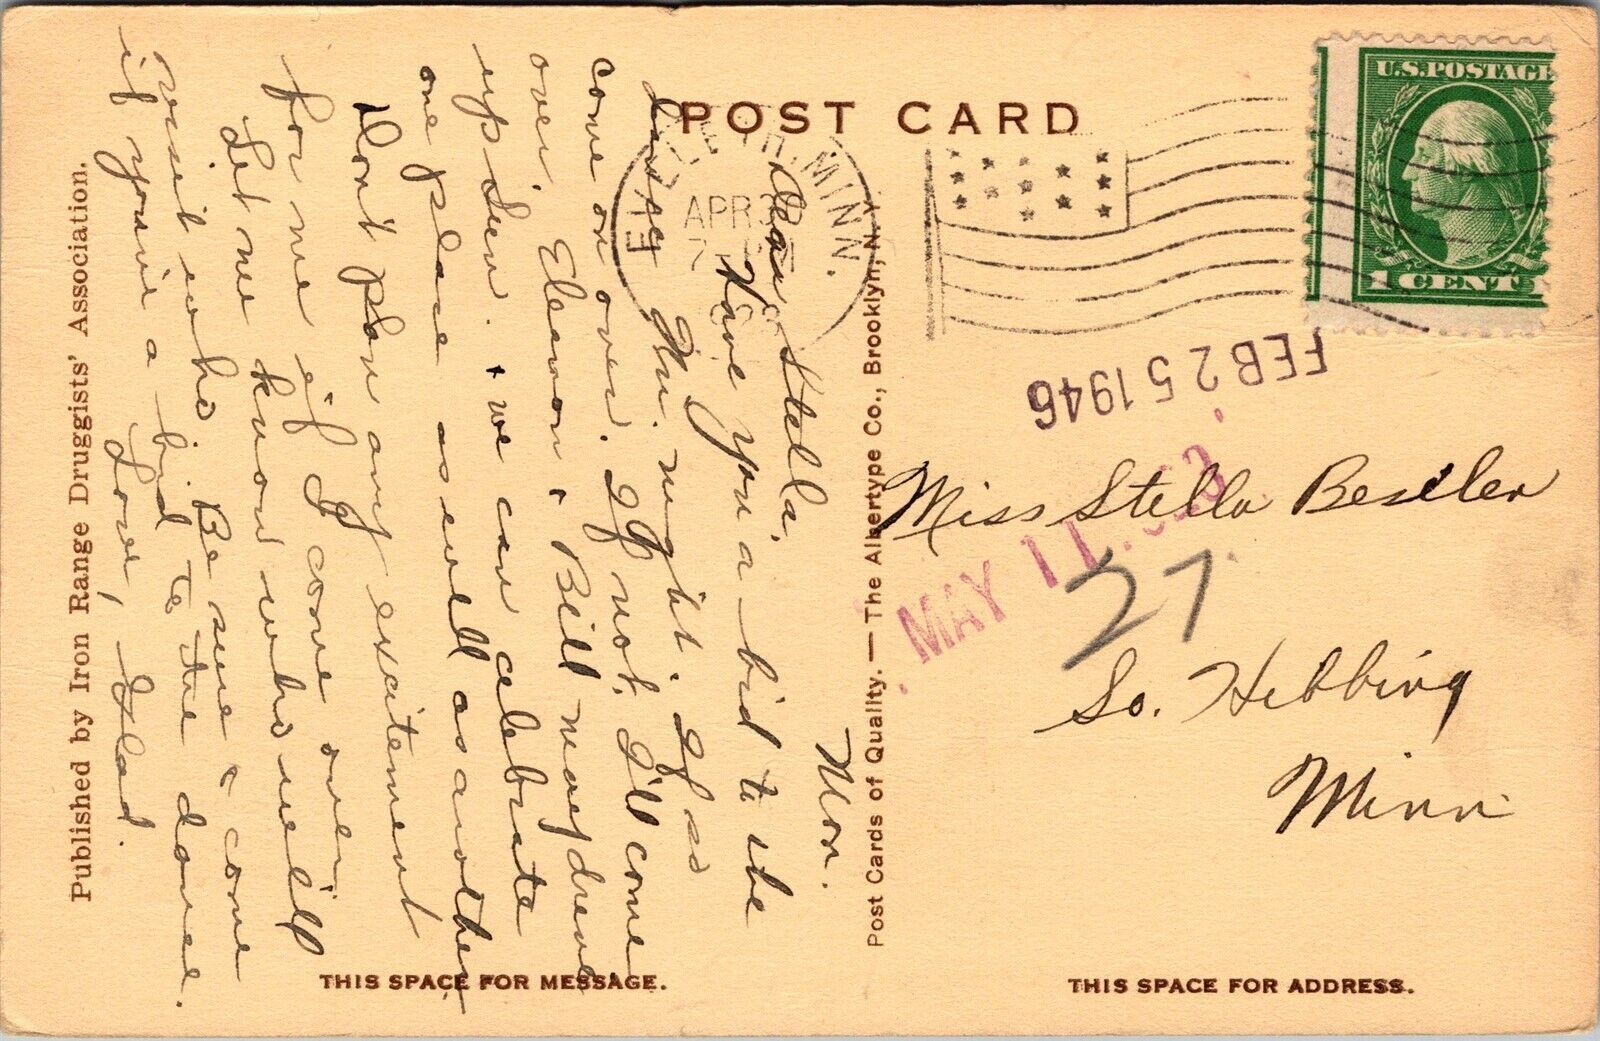 POST CARD
U.S. POSTAGE
1 CENT
EVELETH, MINN.
APR
FEB 25 1946
MAY 11
27
Miss Stella Besiler
So. Hibbing
Minn.
THIS SPACE FOR ADDRESS.
Post Cards of Quality. — The Albertype Co., Brooklyn, N.Y.
Mon.
Dear Stella,
Have you a bid to the
dance Fri. night. If so
come on over. If not, I'll come
over. Eleanor & Bill may drive
up Sun. & we can celebrate
one place as well as another.
Don't plan any excitement
for me if I come over.
Let me know who will
visit who. Be sure & come
if you've a bid to the dance.
Love, Glad.
THIS SPACE FOR MESSAGE.
Published by Iron Range Druggists' Association.